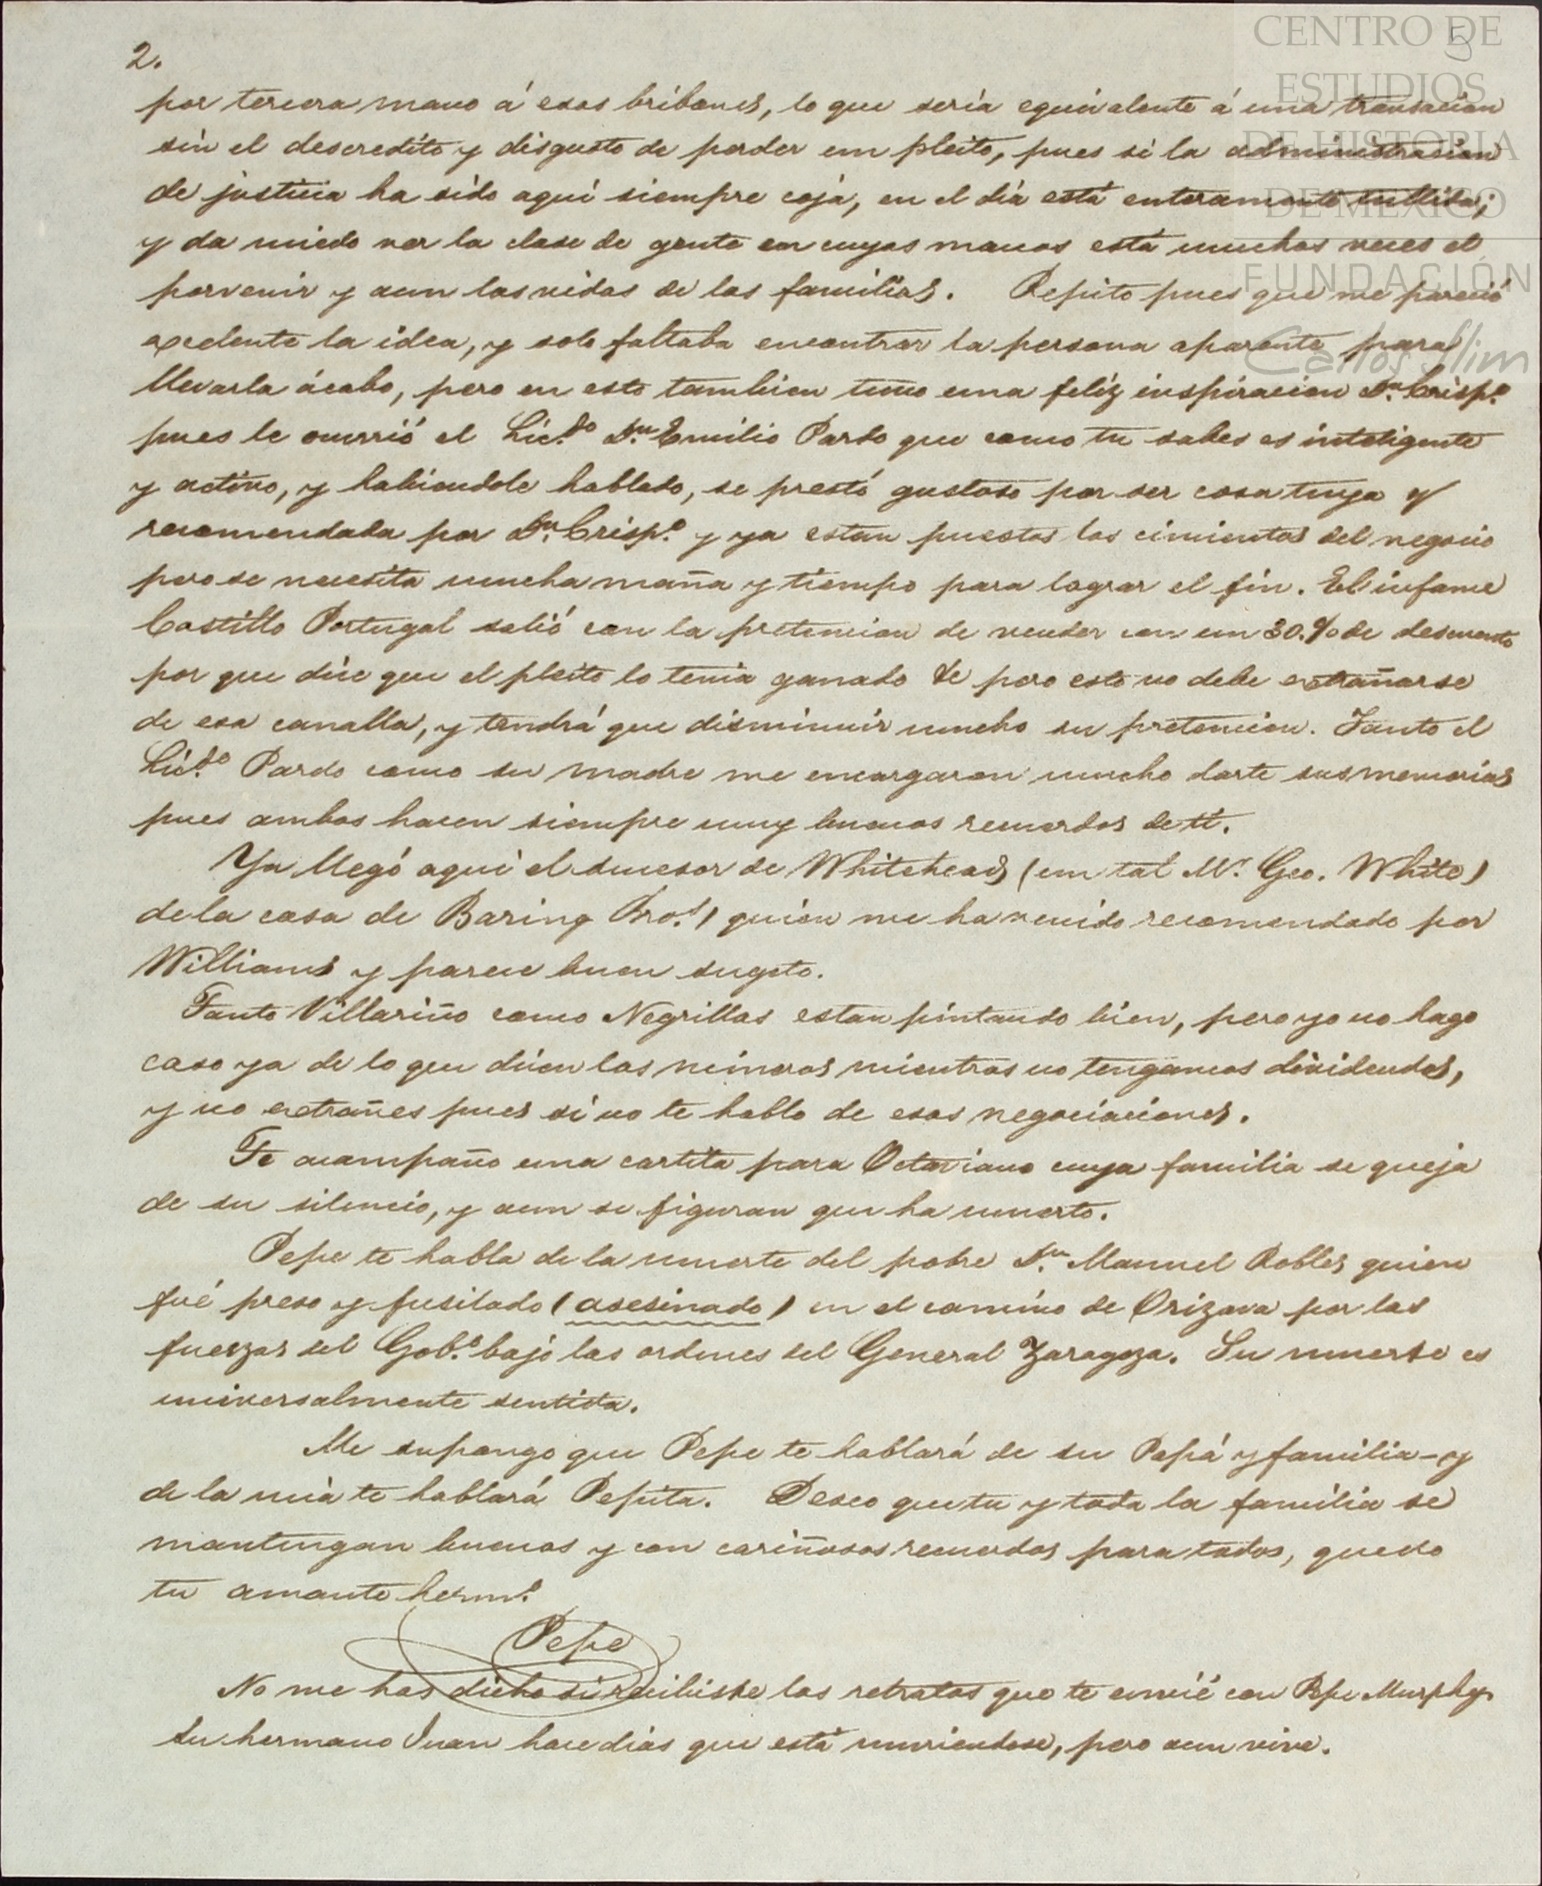 CENTRO DE
ESTUDIOS
DE HISTORIA
DE MEXICO
FUNDACIÓN
Carlos Slim
5
2.
por tercera mano á esos bribones, lo que seria equivalente á una transacion
sin el descredito y disgusto de perder un pleito, pues si la administracion
de justicia ha sido aquí siempre coja, en el dia está enteramente tullida;
y da miedo ver la clase de gente en cuyas manos está muchas veces el
porvenir y aun las vidas de las familias. Repito pues que me pareció
excelente la idea, y solo faltaba encontrar la persona aparente para
llevarla ácabo, pero en esto tambien tuvo una feliz inspiracion Dn. Crispo.
pues le ocurrió el Licdo. Dn. Emilio Pardo que como tu sabes es inteligente
y activo, y habiendole hablado, se prestó gustoso por ser cosa tuya y
recomendada por Dn. Crispo. y ya estan puestos los cimientos del negocio
pero se necesita mucha maña y tiempo para lograr el fin. El infame
Castillo Portugal salió con la pretencion de vender con un 30.% de descuento
por que dice que el pleito lo tenia ganado &c pero esto no debe extrañarse
de esa canalla, y tendrá que disminuir mucho su pretencion. Tanto el
Licdo. Pardo como su madre me encargaron mucho darte sus memorias
pues ambos hacen siempre muy buenos recuerdos de tí.
Ya llegó aquí el sucesor de Whitehead (un tal Mr. Geo. White)
de la casa de Baring Bros.) quien me ha venido recomendado por
Williams y parece buen sugeto.
Tanto Villariño como Negrillas estan pintando bien, pero yo no hago
caso ya de lo que dicen los mineros mientras no tengamos dividendos,
y no extrañes pues si no te hablo de esas negociaciones.
Te acompaño una cartita para Octaviano cuya familia se queja
de su silencio, y aun se figuran que ha muerto.
Pepe te habla de la muerte del pobre Dn. Manuel Robles quien
fué preso y fusilado (asesinado) en el camino de Orizava por las
fuerzas del Gobo. bajo las ordenes del General Zaragoza. Su muerte es
universalmente sentida.
Me supongo que Pepe te hablará de su Papá y familia - y
de la mia te hablará Pepita. Deseo que tu y toda la familia se
mantengan buenos y con cariñosos recuerdos para todos, quedo
tu amante hermo.
Pepe
No me has dicho si recibiste los retratos que te envié con Pepe Murphy
Su hermano Juan hace dias que está muriendose, pero aun vive.